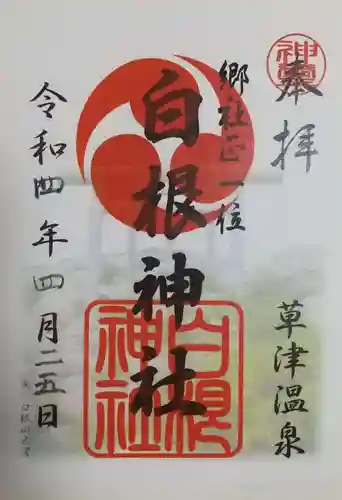 奉拝
郷社正一位
白根神社
草津温泉
令和四年四月二五日
白根神社